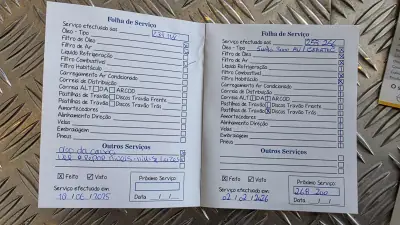 Folha de Serviço
Serviço efectuado aos
Óleo - Tipo
Filtro de Óleo
Filtro de Ar
Líquido Refrigeração
Filtro Combustível
Filtro Habitáculo
Carregamento Ar Condicionado
Correia de Distribuição
Correia ALT DA ARCOD
Pastilhas de Travão Discos Travão Frente
Pastilhas de Travão Discos Travão Trás
Amortecedores
Alinhamento Direção
Velas
Embraiagem
Pneus
Outros Serviços
Feito Visto
Serviço efectuado em
Próximo Serviço:
Data / /
Folha de Serviço
Serviço efectuado aos
Óleo - Tipo
Filtro de Óleo
Filtro de Ar
Líquido Refrigeração
Filtro Combustível
Filtro Habitáculo
Carregamento Ar Condicionado
Correia de Distribuição
Correia ALT DA ARCOD
Pastilhas de Travão Discos Travão Frente
Pastilhas de Travão Discos Travão Trás
Amortecedores
Alinhamento Direção
Velas
Embraiagem
Pneus
Outros Serviços
Feito Visto
Serviço efectuado em
02/02/2026
Próximo Serviço:
268 200
Data / /